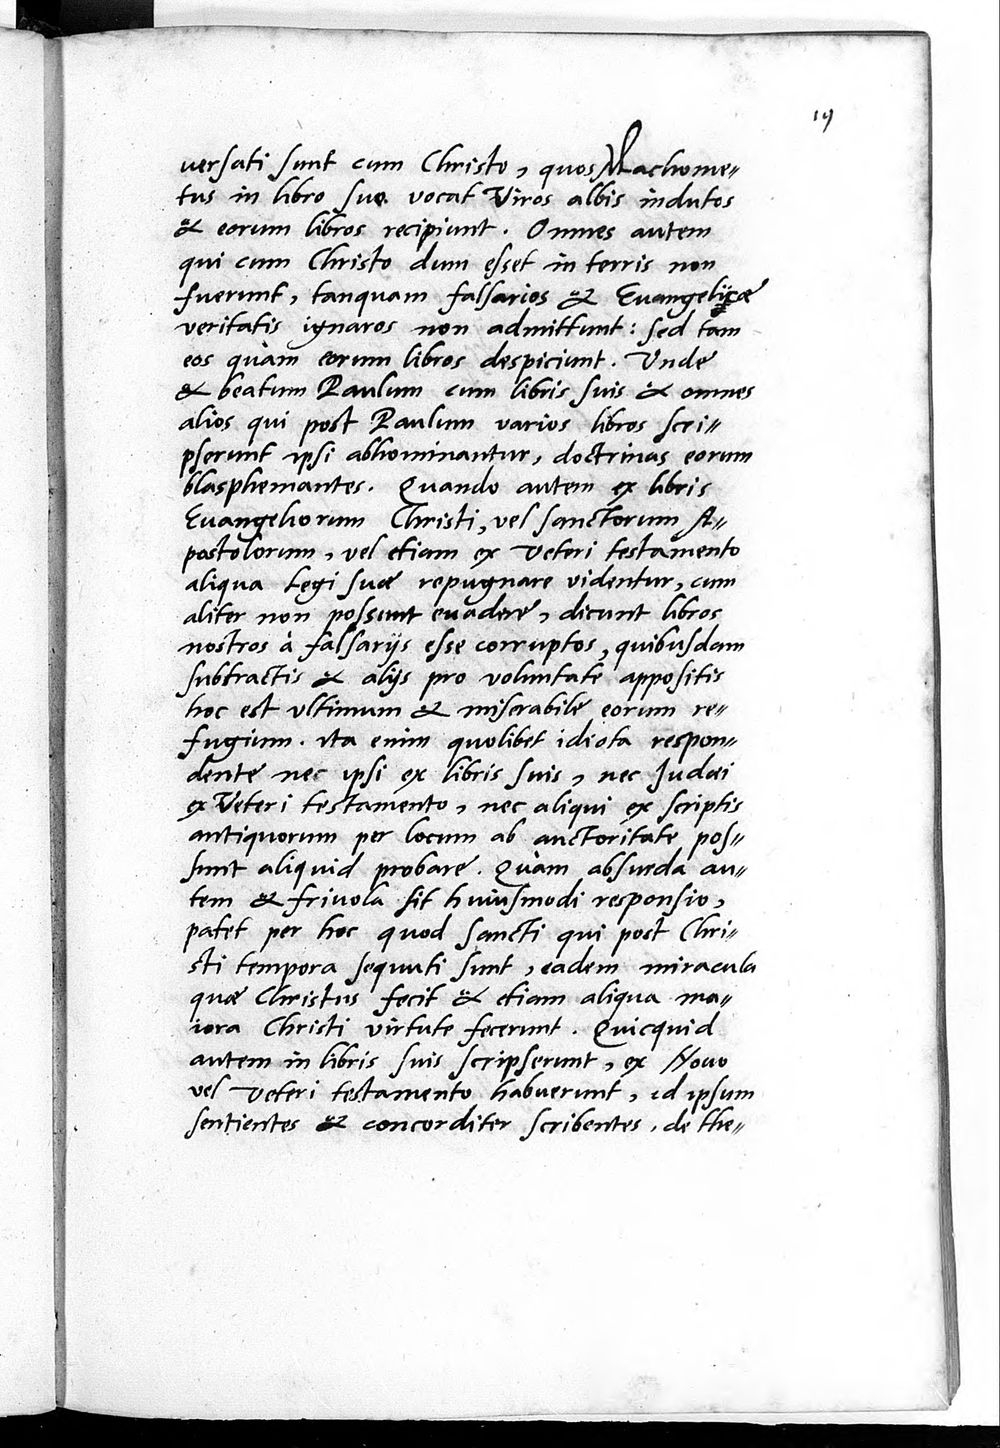 19
uersati sunt cum Christo, quos Machome„
tus in libro suo vocat Viros albis indutos
& eorum libros recipiunt. Omnes autem
qui cum Christo dum esset in terris non
fuerunt, tanquam falsarios & Euangelicæ
veritatis ignaros non admittunt: sed tam
eos quàm eorum libros despiciunt. Unde
& beatum Paulum cum libris suis & omnes
alios qui post Paulum varios libros scri„
pserunt ipsi abhominantur, doctrinas eorum
blasphemantes. Quando autem ex libris
Euangeliorum Christi, vel sanctorum A„
postolorum, vel etiam ex Veteri testamento
aliqua Legi suæ repugnare videntur, cum
aliter non possunt euadere, dicunt libros
nostros à falsarijs esse corruptos, quibusdam
subtractis & alijs pro voluntate appositis
hoc est vltimum & miserabile eorum re„
fugium. ita enim quolibet idiota respon„
dente nec ipsi ex libris suis, nec Judæi
ex Veteri testamento, nec aliqui ex scriptis
antiquorum per locum ab auctoritate pos„
sunt aliquid probare. Quàm absurda au„
tem & friuola sit huiusmodi responsio,
patet per hoc quod sancti qui post Chri„
sti tempora sequuti sunt, eadem miracula
quæ Christus fecit & etiam aliqua ma„
iora Christi virtute fecerunt. Quicquid
autem in libris suis scripserunt, ex Nouo
vel Veteri testamento habuerunt, id ipsum
sentientes & concorditer scribentes, de the„